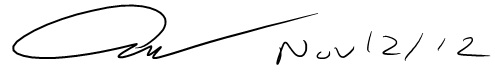 Nov 12/12